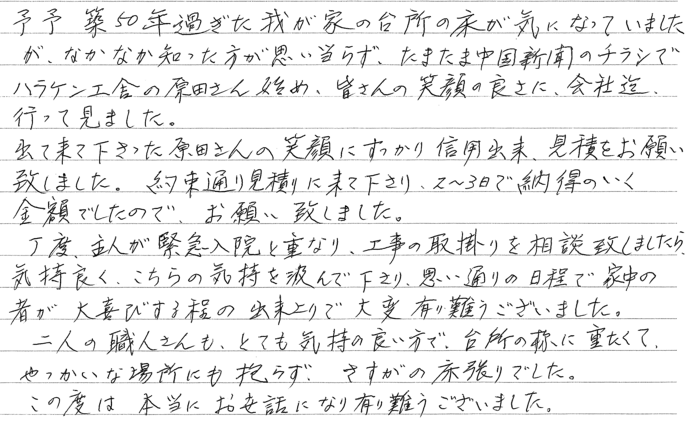 予予 築50年過ぎた我が家の台所の床が気になっていました
が、なかなか知った方が思い当らず、たまたま中国新聞のチラシで
ハラケン工舎の原田さん始め、皆さんの笑顔の良さに、会社迄、
行って見ました。
出て来て下さった原田さんの笑顔にすっかり信用出来、見積をお願い
致しました。 約束通り見積りに来て下さり、2~3日で納得のいく
金額でしたので、お願い致しました。
丁度、主人が緊急入院と重なり、工事の取掛りを相談致しましたら
気持良く、こちらの気持を汲んで下さり、思い通りの日程で家中の
者が大喜びする程の出来上りで大変有り難うございました。
二人の職人さんも、とても気持の良い方で、台所の様に重たくて、
やっかいな場所にも拘らず、さすがの床張りでした。
この度は本当にお世話になり有り難うございました。